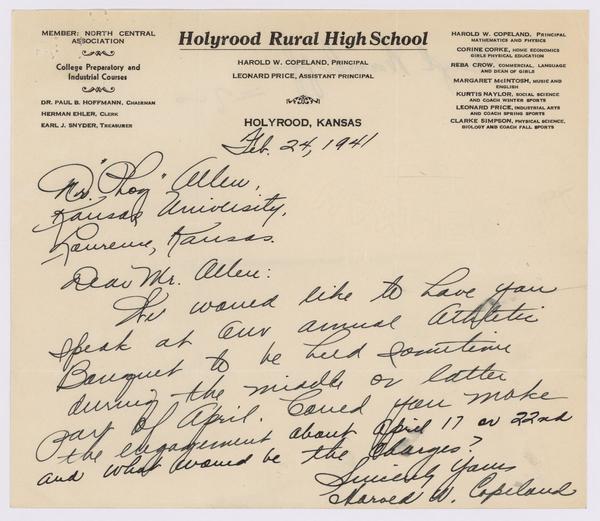 MEMBER: NORTH CENTRAL
ASSOCIATION
College Preparatory and
Industrial Courses
DR. PAUL B. HOFFMANN, CHAIRMAN
HERMAN EHLER, CLERK
EARL J. SNYDER, TREASURER
Holyrood Rural High School
HAROLD W. COPELAND, PRINCIPAL
LEONARD PRICE, ASSISTANT PRINCIPAL
HOLYROOD, KANSAS
HAROLD W. COPELAND, PRINCIPAL
MATHEMATICS AND PHYSICS
CORINE CORKE, HOME ECONOMICS
GIRLS PHYSICAL EDUCATION
REBA CROW, COMMERCIAL, LANGUAGE
AND DEAN OF GIRLS
MARGARET McINTOSH, MUSIC AND
ENGLISH
KURTIS NAYLOR, SOCIAL SCIENCE
AND COACH WINTER SPORTS
LEONARD PRICE, INDUSTRIAL ARTS
AND COACH SPRING SPORTS
CLARKE SIMPSON, PHYSICAL SCIENCE,
BIOLOGY AND COACH FALL SPORTS
Feb. 24, 1941
Mr. "Phog" Allen,
Kansas University,
Lawrence, Kansas.
Dear Mr. Allen:
We would like to have you
speak at our annual Athletic
Banquet to be held sometime
during the middle or latter
part of April. Could you make
the engagement about April 17 or 22nd
and what would be the charges?
Sincerely Yours
Harold W. Copeland